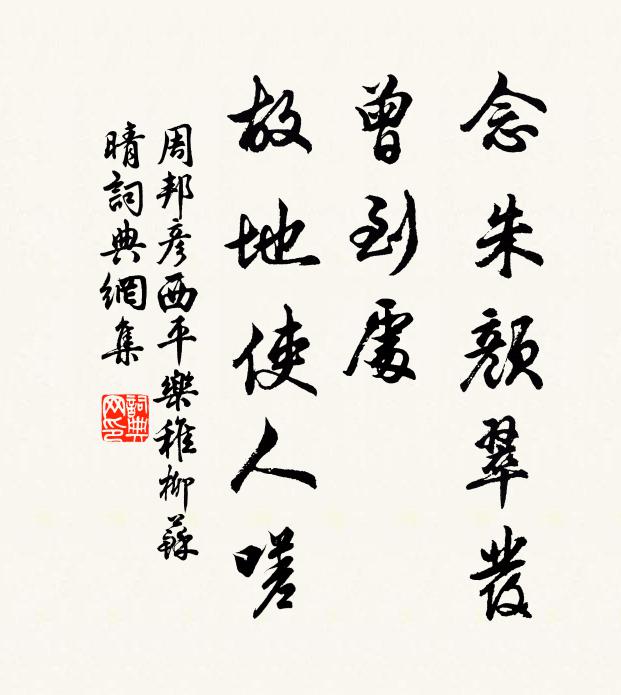 念朱顏翠髮
曾到處
故地使人嗟
周邦彥西平樂稚柳蘇
晴詞典網集
詞典網印